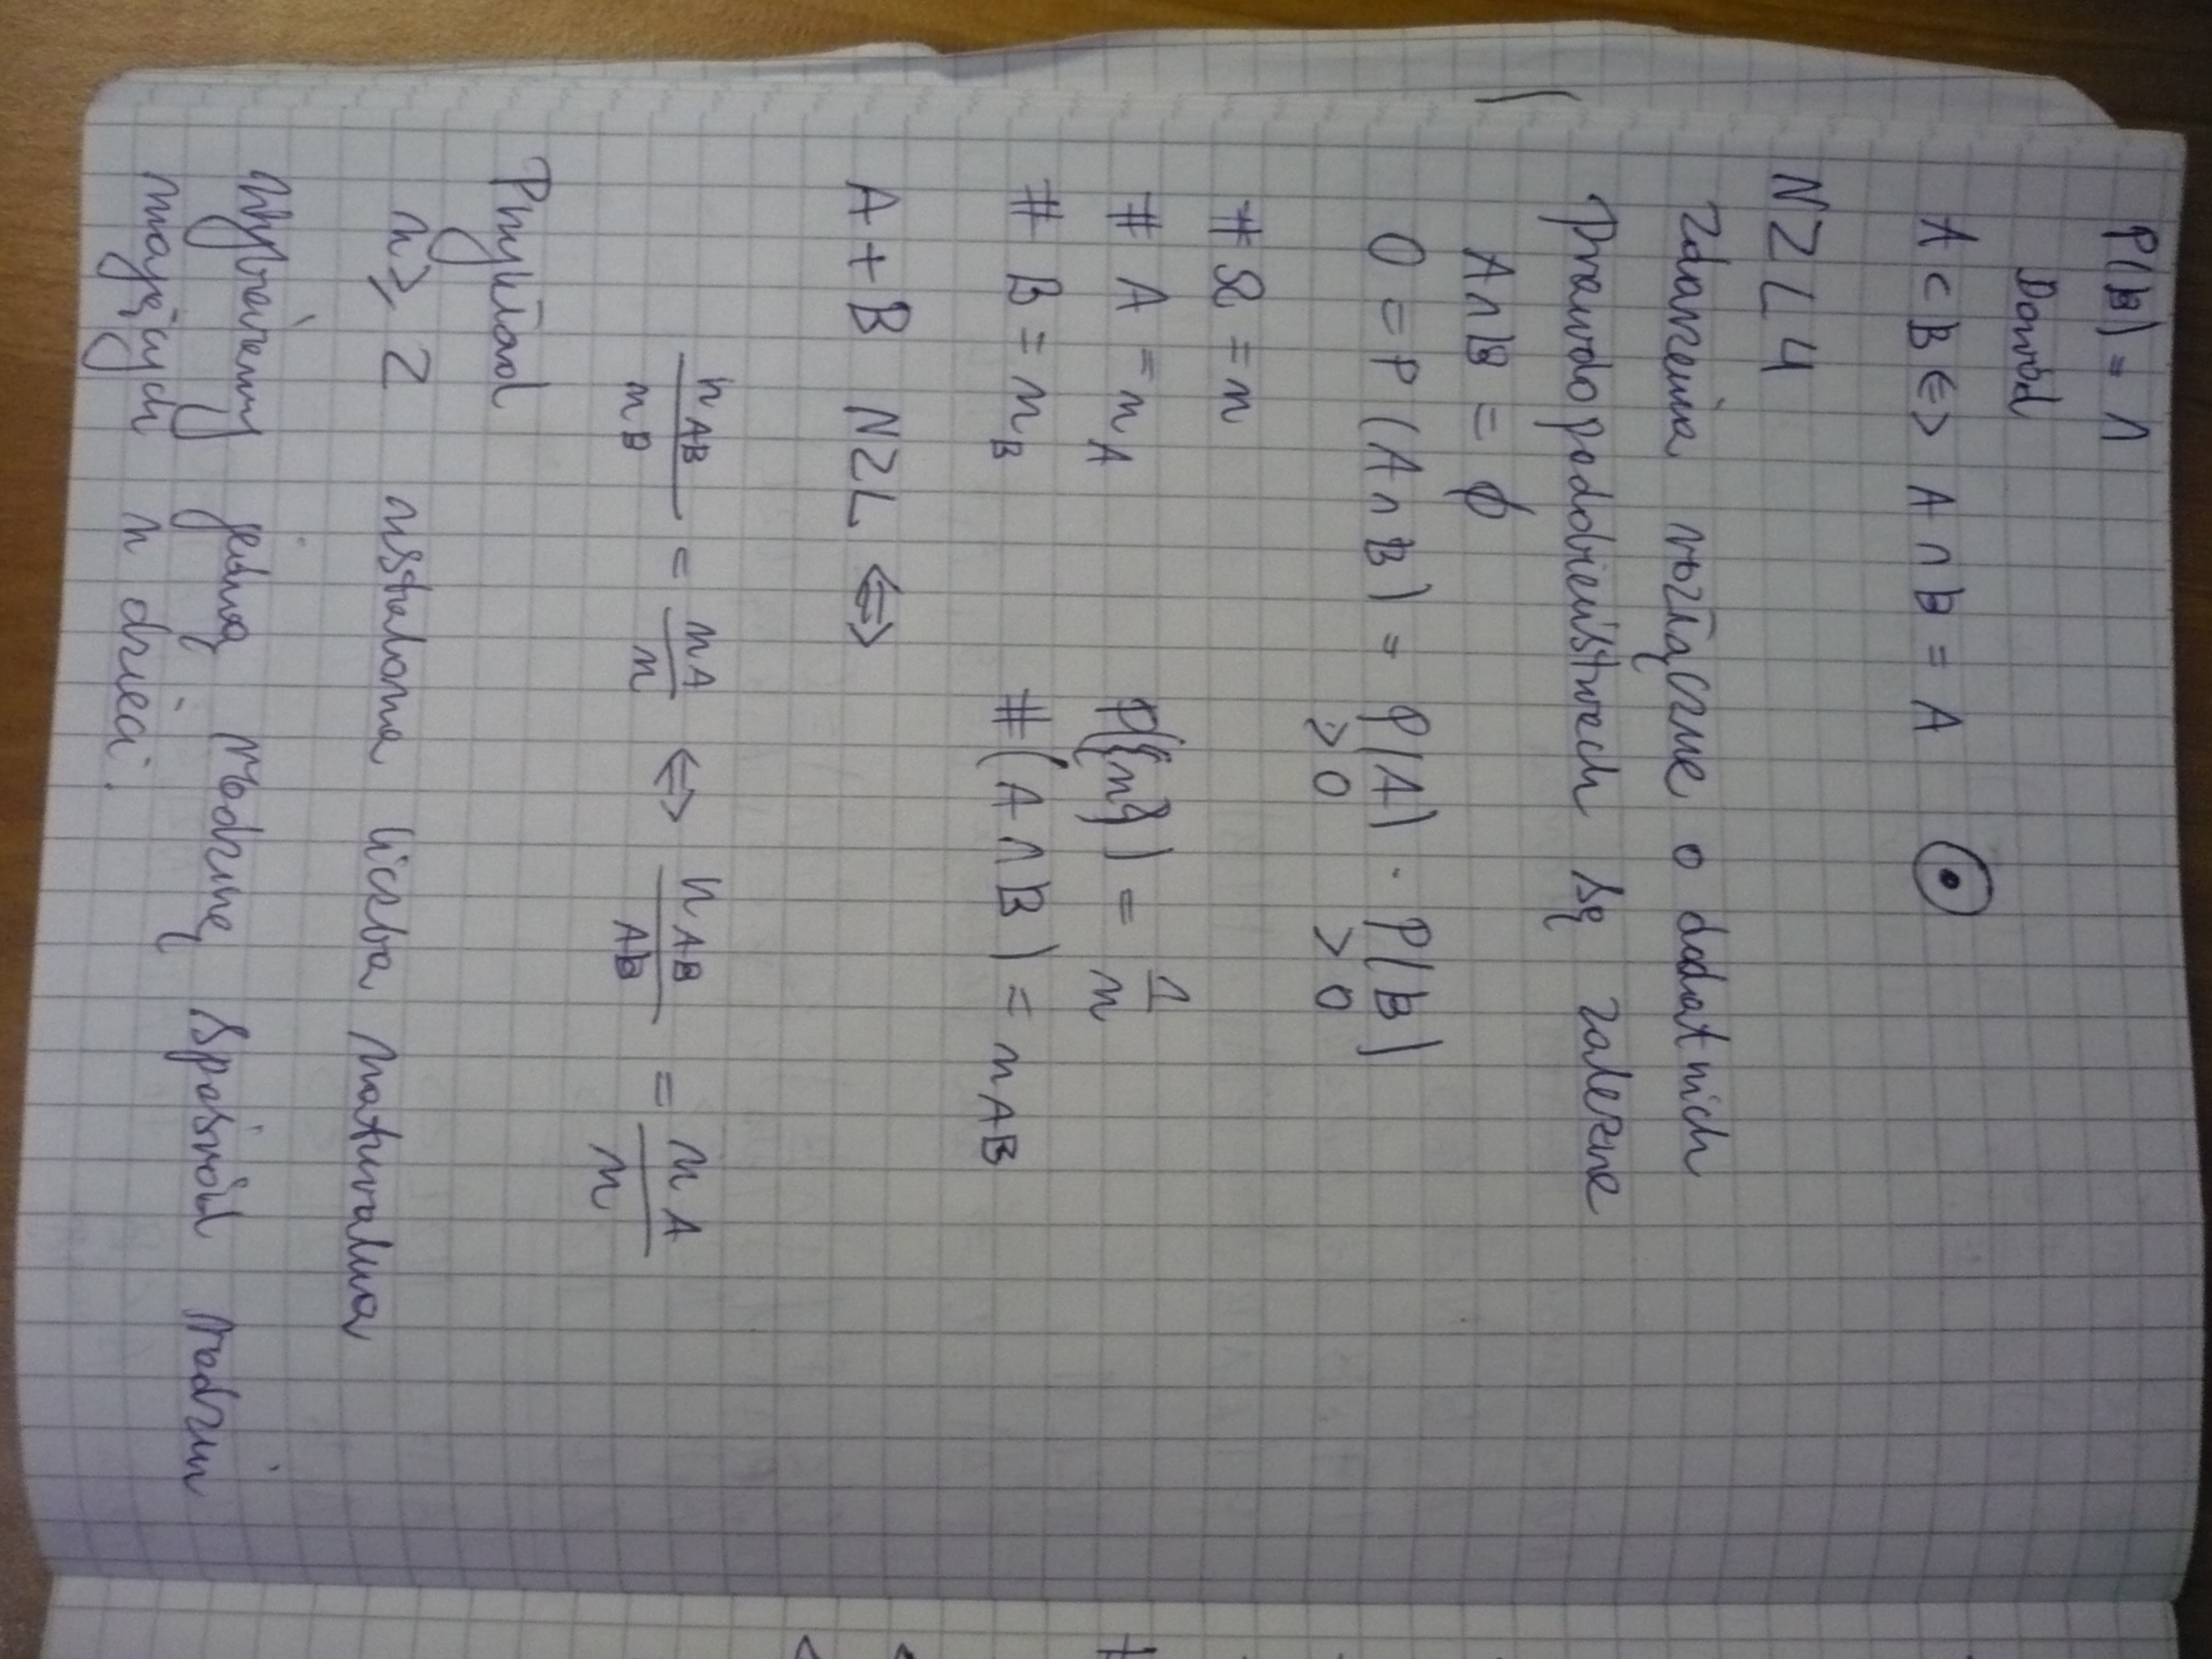 P(B) = 1
Dowód
A ⊂ B ⇔ A ∩ B = A ⊙
NZL 4
Zdarzenia rozłączne o dodatnich
Prawdopodobieństwach są zależne
A ∩ B = ∅
0 = P(A ∩ B) = P(A) · P(B)
> 0 > 0
# Ω = n
# A = n_A P({n}) = 1/n
# B = n_B #(A ∩ B) = n_AB
A + B NZL ⇔
n_AB/n_B = n_A/n ⇔ n_AB/AB = n_A/n
Przykład
n ≥ 2 ustalona liczba naturalna
Wybieramy jedną rodzinę spośród rodzin
mających n dzieci.